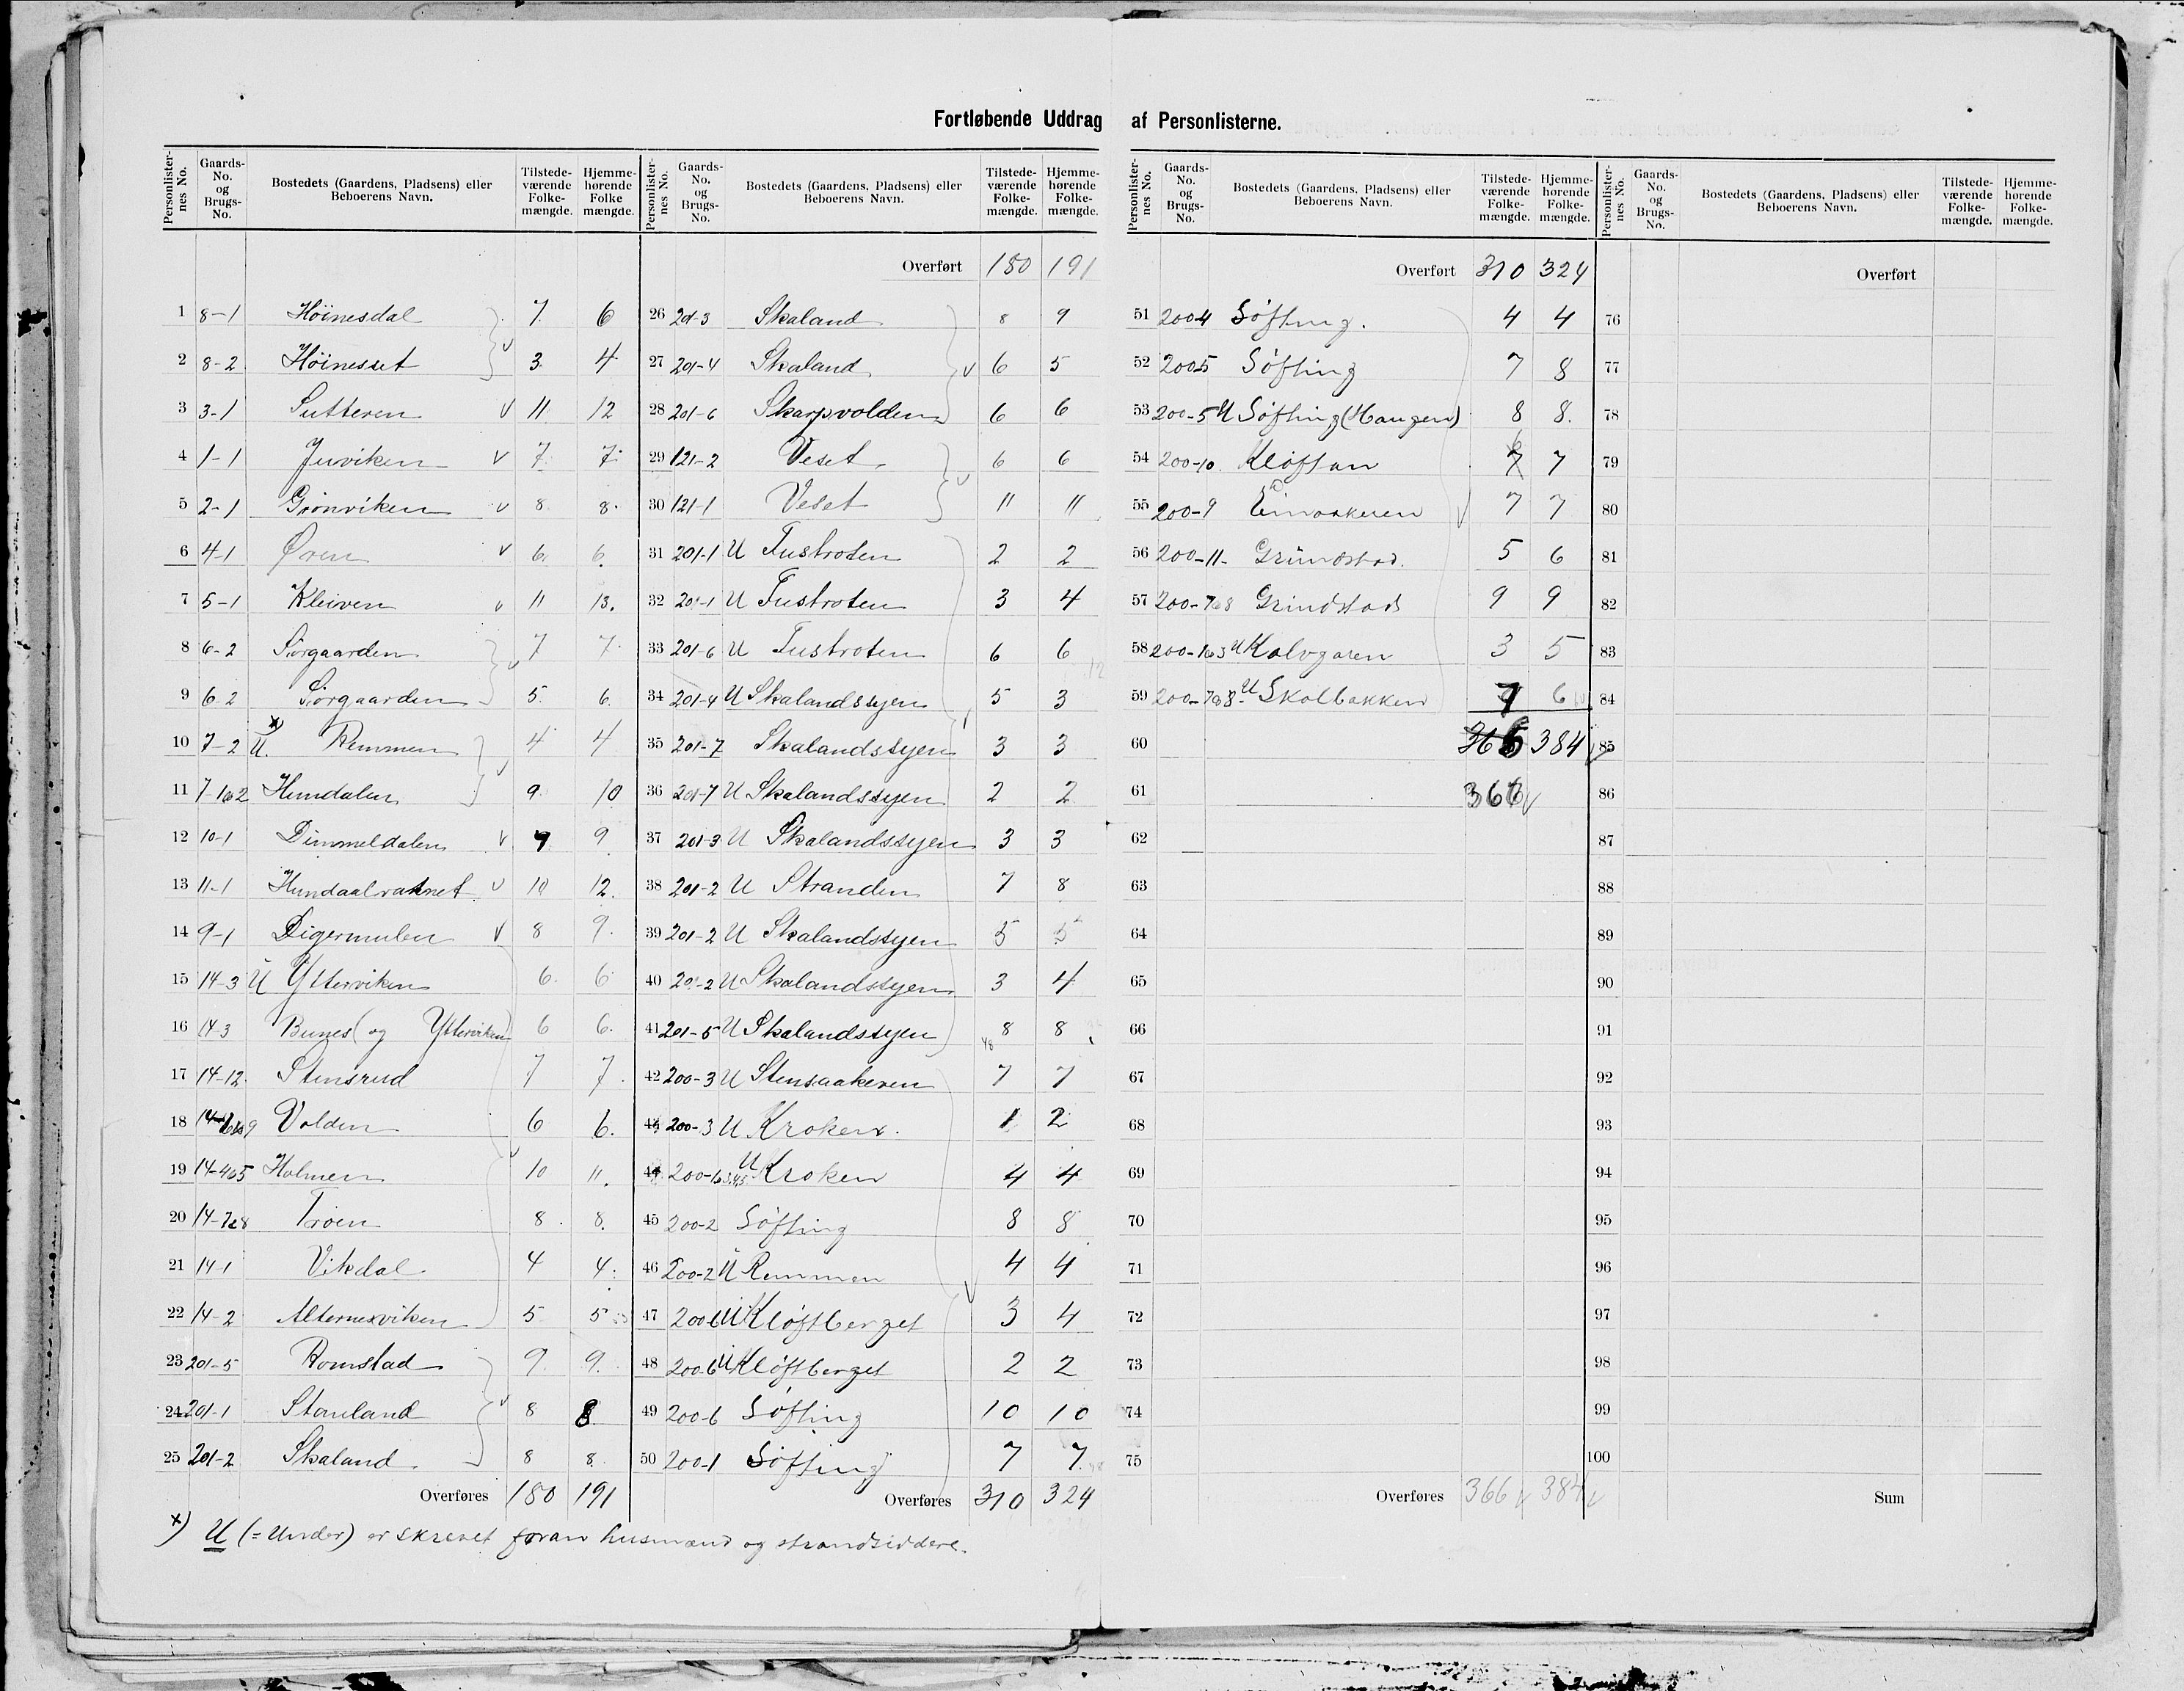 Fortløbende Uddrag af Personlisterne.
Personlister-nes No. Gaards-No. og Brugs-No. Bostedets (Gaardens, Pladsens) eller Beboerens Navn. Tilstede-værende Folke-mængde. Hjemme-hørende Folke mængde.
1 8-1 Höinesdal 7 6
2 8-2 Höinesset 3 4
3 3-1 Sutteren v 11 12
4 1-1 Juviken v 7 7
5 2-1 Grönviken v 8 8
6 4-1 Øren v 6 6
7 5-1 Kleiven v 11 13
8 6-2 Sörgaarden 7 7
9 6-2 Sörgaarden 5 6
10 7-2 U x) Remmen 4 4
11 7-1&2 Hundalen 9 10
12 10-1 Dimmeldalen v 7 9
13 11-1 Hundaalvatnet v 10 12
14 9-1 Digermulen v 8 9
15 14-3 U Ytterviken 6 6
16 14-3 Bunes (og Ytterviken) 6 6
17 14-12 Stensrud 7 7
18 Volden 6 6
19 14-4&5 Holmen 10 11
20 14-7&8 Troen 8 8
21 14-1 Vikdal 4 4
22 14-2 Alternesviken 5 5
23 201-5 Romstad 9 9
24 201-1 Skaland 8 8
25 201-2 Skaland 8 8
Overføres 180 191
x) U (= Under) er skrevet foran husmænd og strandsiddere.
Personlister-nes No. Gaards-No. og Brugs-No. Bostedets (Gaardens, Pladsens) eller Beboerens Navn. Tilstede-værende Folke-mængde. Hjemme-hørende Folke-mængde.
Overført 180 191
26 201-3 Skaland 8 9
27 201-4 Skaland v 6 5
28 201-6 Skarpvolden 6 6
29 121-2 Veset 6 6
30 121-1 Veset 11 11
31 201-1 U Fustroten 2 2
32 201-1 U Fustroten 3 4
33 201-6 U Fustroten 6 6
34 201-4 U Skalandsøyen 5 3
35 201-7 Skalandsøyen 3 3
36 201-7 U Skalandsøyen 2 2
37 201-3 U Skalandsøyen 3 3
38 201-2 U Stranden 7 8
39 201-2 U Skalandsøyen 5 5
40 201-2 U Skalandsøyen 3 4
41 201-5 U Skalandsøyen 8 8
42 200-3 U Stensaakeren 7 7
43 200-3 U Kroken 1 2
44 U Kroken 4 4
45 200-2 Søfting 8 8
46 200-2 U Remmen 4 4
47 200-6 U Kløftberget 3 4
48 200-6 U Kløftberget 2 2
49 200-6 Søfting 10 10
50 200-1 Søfting 7 7
Overføres 310 324
Personlister-nes No. Gaards-No. og Brugs-No. Bostedets (Gaardens, Pladsens) eller Beboerens Navn. Tilstede-værende Folke-mængde. Hjemme-hørende Folke-mængde.
Overført 310 324
51 200-4 Søfting. 4 4
52 200-5 Søfting 7 8
53 200-5 U Søfting (Haugen) 8 8
54 200-10 Kløftan 7 7
55 200-9 Einaakeren 7 7
56 200-11 Grindstad 5 6
57 200-7&8 Grindstad 9 9
58 200-1&3 U Kalvgaren 3 5
59 200-7&8 U Skolbakken 7 6
60 366 384
61 366 v
62
63
64
65
66
67
68
69
70
71
72
73
74
75
Overføres 366 v 384 v
Personlister-nes No. Gaards-No. og Brugs-No. Bostedets (Gaardens, Pladsens) eller Beboerens Navn. Tilstede-værende Folke-mængde. Hjemme-hørende Folke-mængde.
Overført
76
77
78
79
80
81
82
83
84
85
86
87
88
89
90
91
92
93
94
95
96
97
98
99
100
Sum